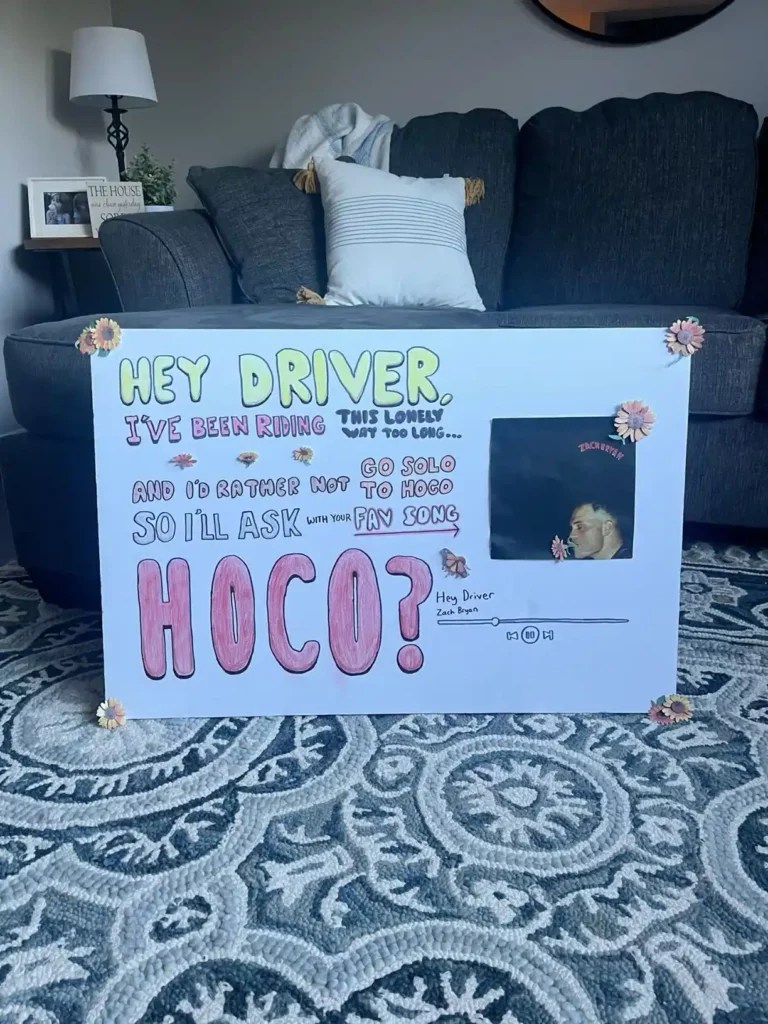 THE HOUSE
HEY DRIVER,
I'VE BEEN RIDING THIS LONELY WAY TOO LONG...
AND I'D RATHER NOT GO SOLO TO HOCO
SO I'LL ASK WITH YOUR FAV SONG
HOCO?
ZACH BRYAN
Hey Driver
Zach Bryan